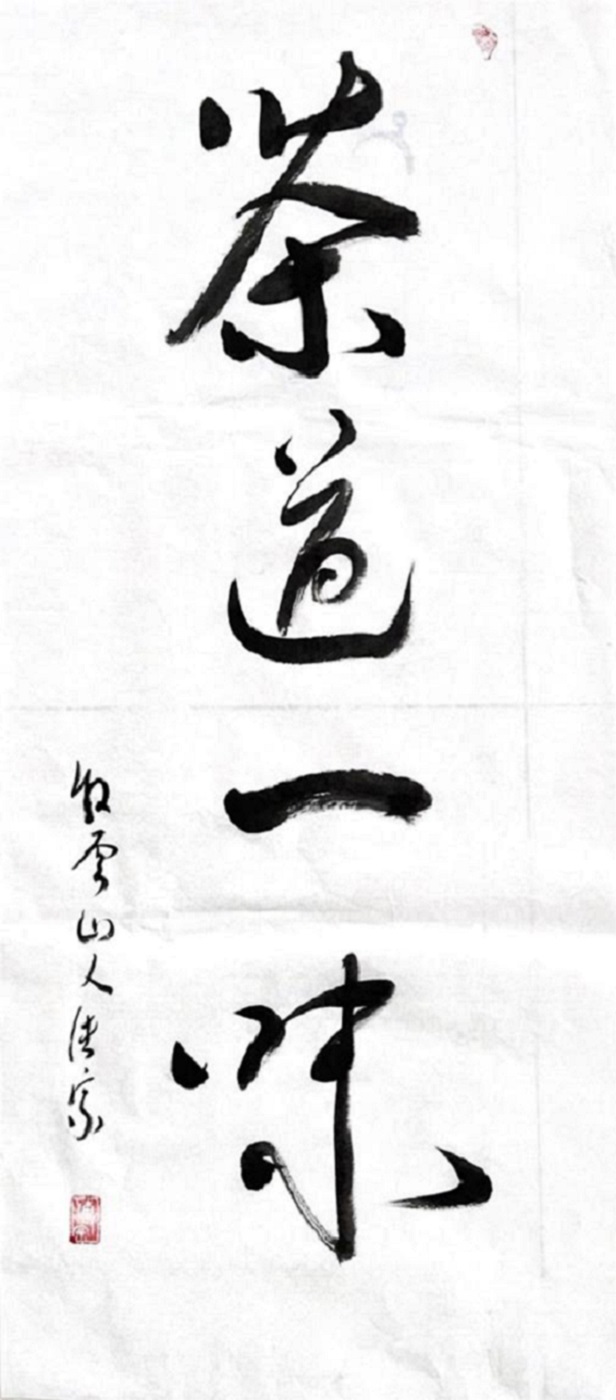 茶道一味
雲山人